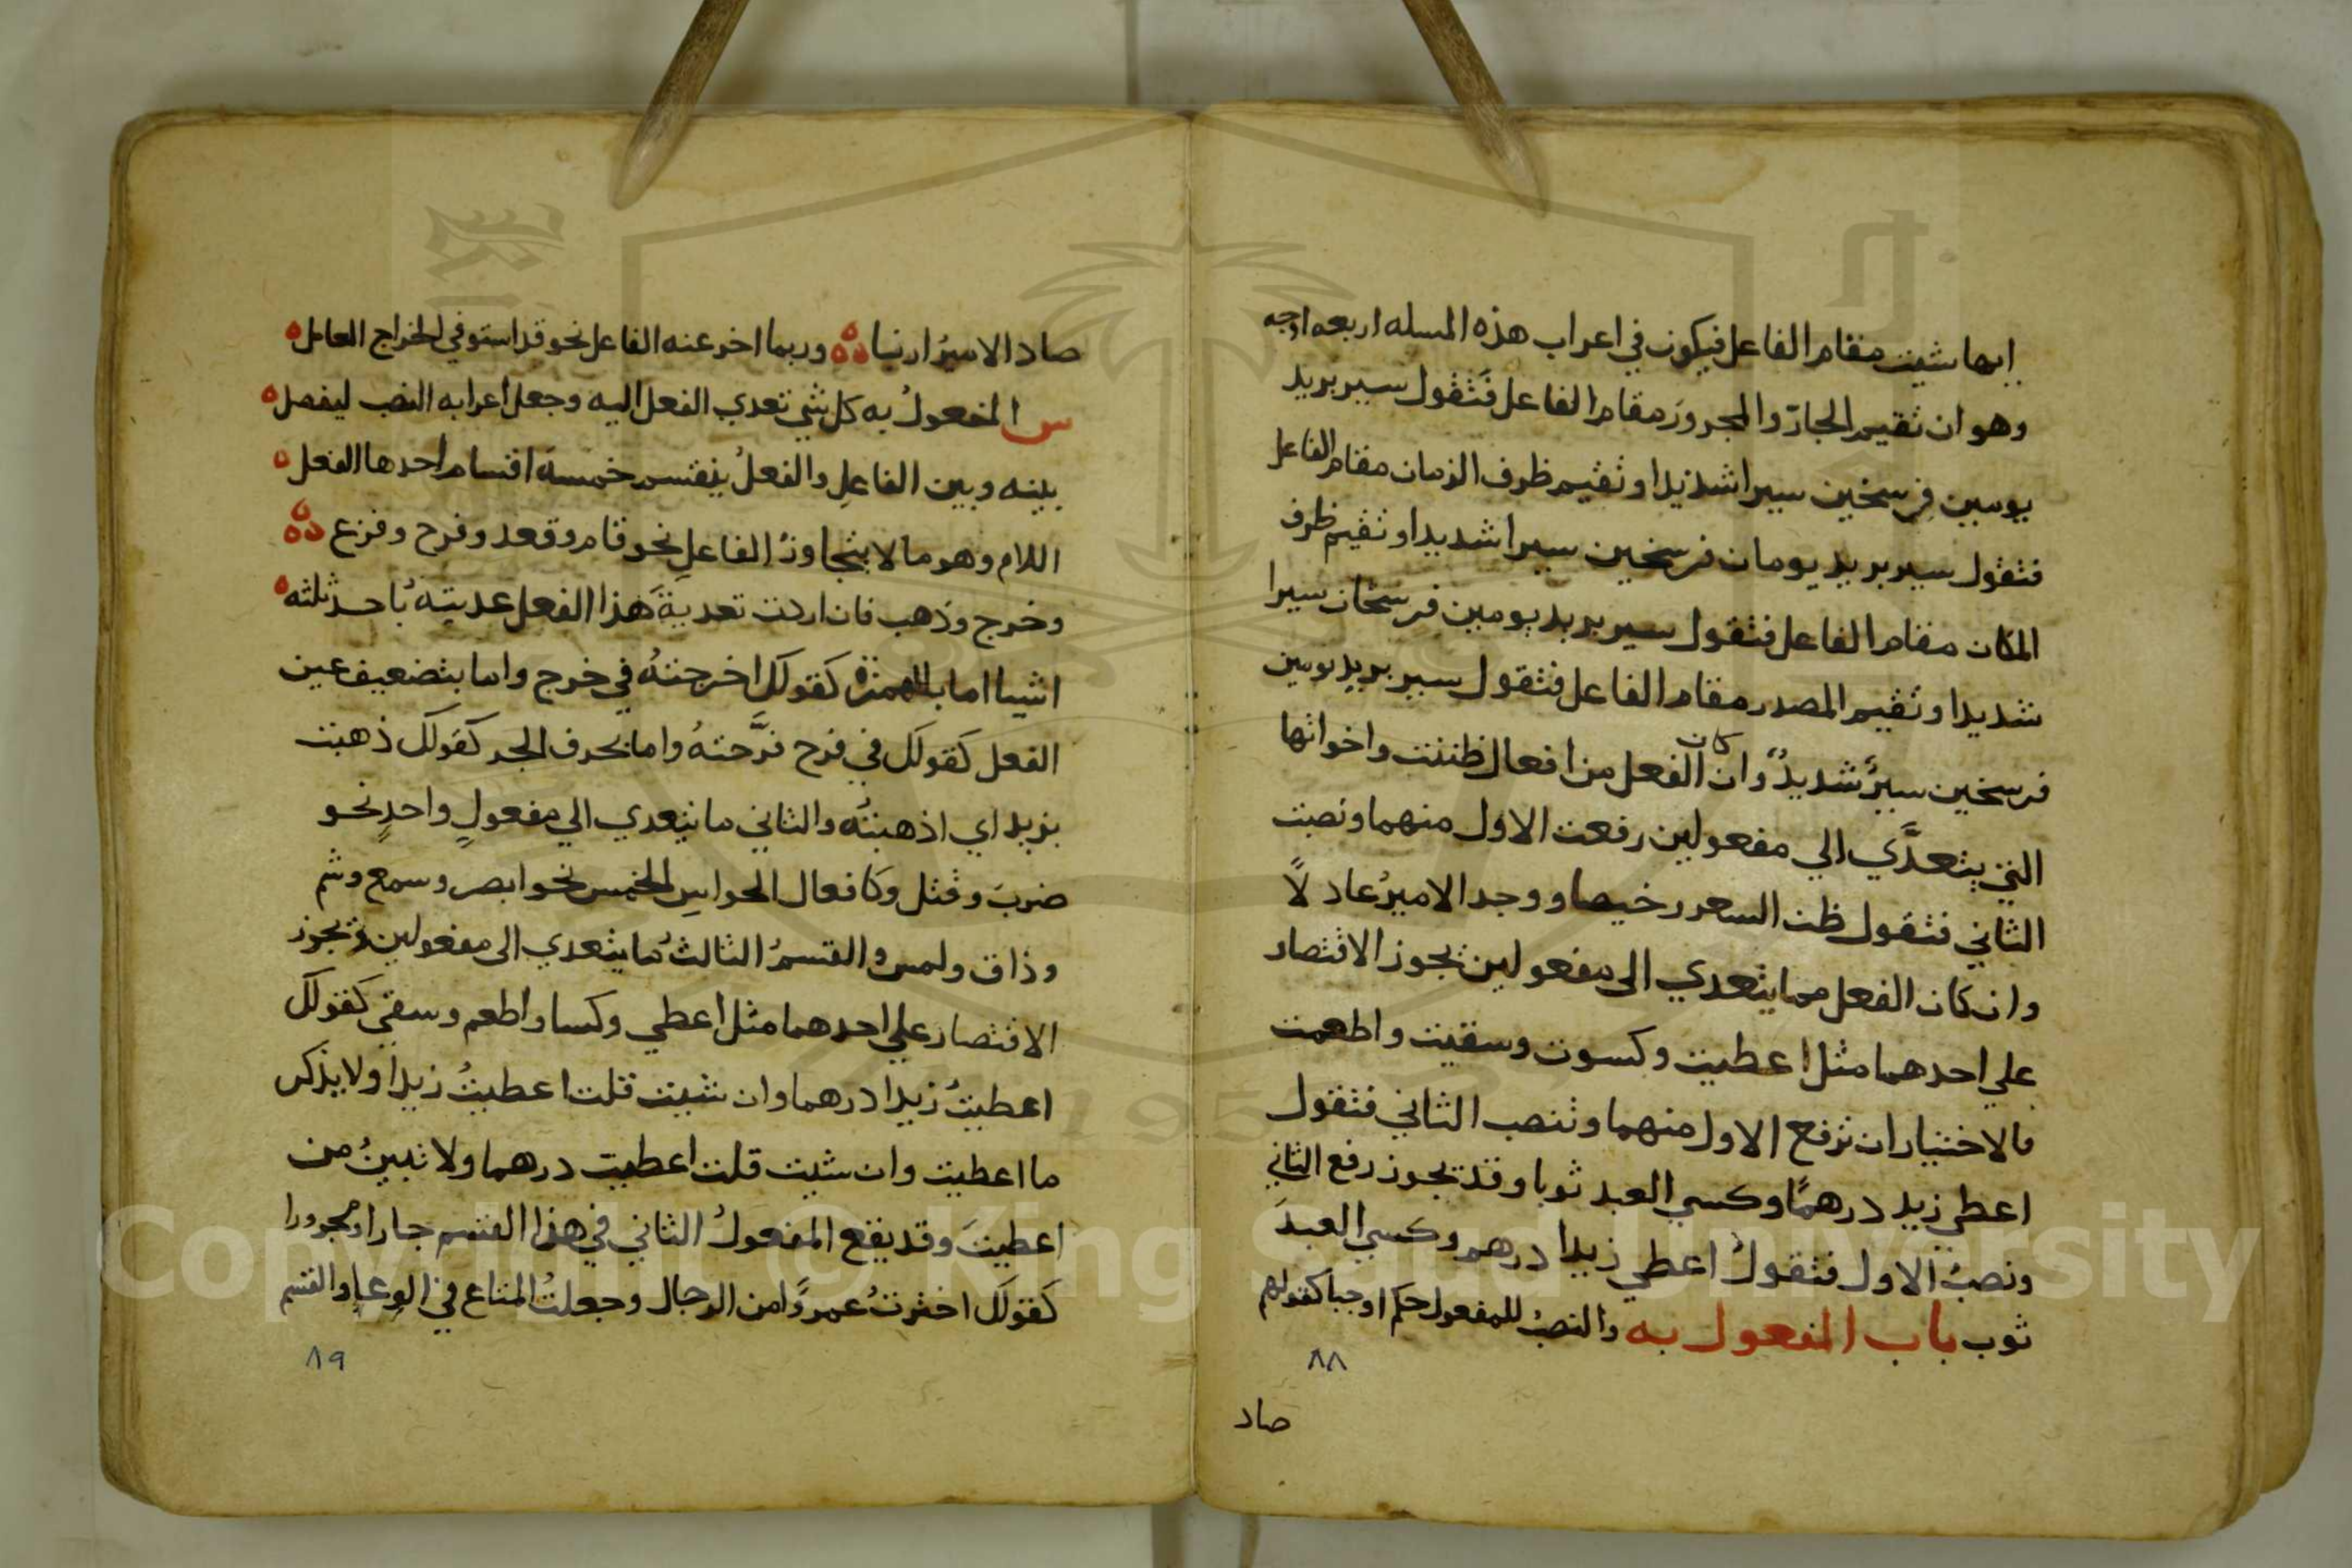 ايها شيت مقام الفاعل فيكون في اعراب هذه المسله اربعه اوجه
وهو ان تقيم الجارّ والمجرور مقام الفاعل فتقول سير بريد
يومين فرسخين سيرا شديدا وتقيم ظرف الزمان مقام الفاعل
فتقول سير بريد يومان فرسخين سيرا شديدا وتقيم ظرف
المكان مقام الفاعل فتقول سير بريد يومين فرسخان سيرا
شديدا وتقيم المصدر مقام الفاعل فتقول سير بريد يومين
فرسخين سيرٌ شديدٌ وان كان الفعل من افعال ظننت واخواتها
التي يتعدَّي الي مفعولين رفعت الاول منهما ونصبت
الثاني فتقول ظن السعر رخيصا ووجد الاميرُ عادلًا
وان كان الفعل مما يتعدي الى مفعولين يجوز الاقتصار
علي احدهما مثل اعطيت وكسوت وسقيت واطعمت
فالاختيار ان ترفع الاول منهما وتنصب الثاني فتقول
اعطي زيد درهمًا وكسي العبد ثوبا وقد يجوز رفع الثاني
ونصبُ الاول فتقولُ اعطي زيدا درهم وكسي العبدَ
ثوب باب المفعول به والنصبُ للمفعول حكم اوجبا كقولهم
٨٨
صاد
صاد الاميرُ ارنبا وربما اخر عنه الفاعل نحو قد استوفي الخراج العامل
س المفعولُ به كل شي تعدي الفعل اليه وجعل اعرابه النصب ليفصل
بينه وبين الفاعلِ والفعلُ ينقسم خمسة اقسام احدها الفعل
اللازم وهو ما لا يتجاوزُ الفاعلِ نحو قام وقعد وفرح وفزع
وخرج وذهب فان اردت تعديةَ هذا الفعل عديته باحد ثلثه
اشيا اما بالهمزة كقولك اخرجتهُ في خرج واما بتضعيف عين
الفعل كقولك في فرح فرَّحتهُ واما بحرف الجر كقولك ذهبت
بزيد اي اذهبتُه والثاني ما يتعدي الي مفعولٍ واحدٍ نحو
ضربَ وقتل وكافعال الحواسِ الخمس نحو ابصر وسمع وشم
وذاق ولمس والقسمُ الثالثُ ما يتعدي الى مفعولين ويجوز
الاقتصار علي احدهما مثل اعطي وكسا واطعم وسقي كقولك
اعطيتُ زيدا درهما وان شيت قلت اعطيتُ زيدا ولا يذكر
ما اعطيت وان شيت قلت اعطيت درهما ولا تبينُ من
اعطيتَ وقد يقع المفعولُ الثاني في هذا القسم جارا ومجرورا
كقولك اخترتُ عمروًا من الرجال وجعلتُ المتاع في الوعاءِ والقسم
٨٩
Copyright © King Saud University